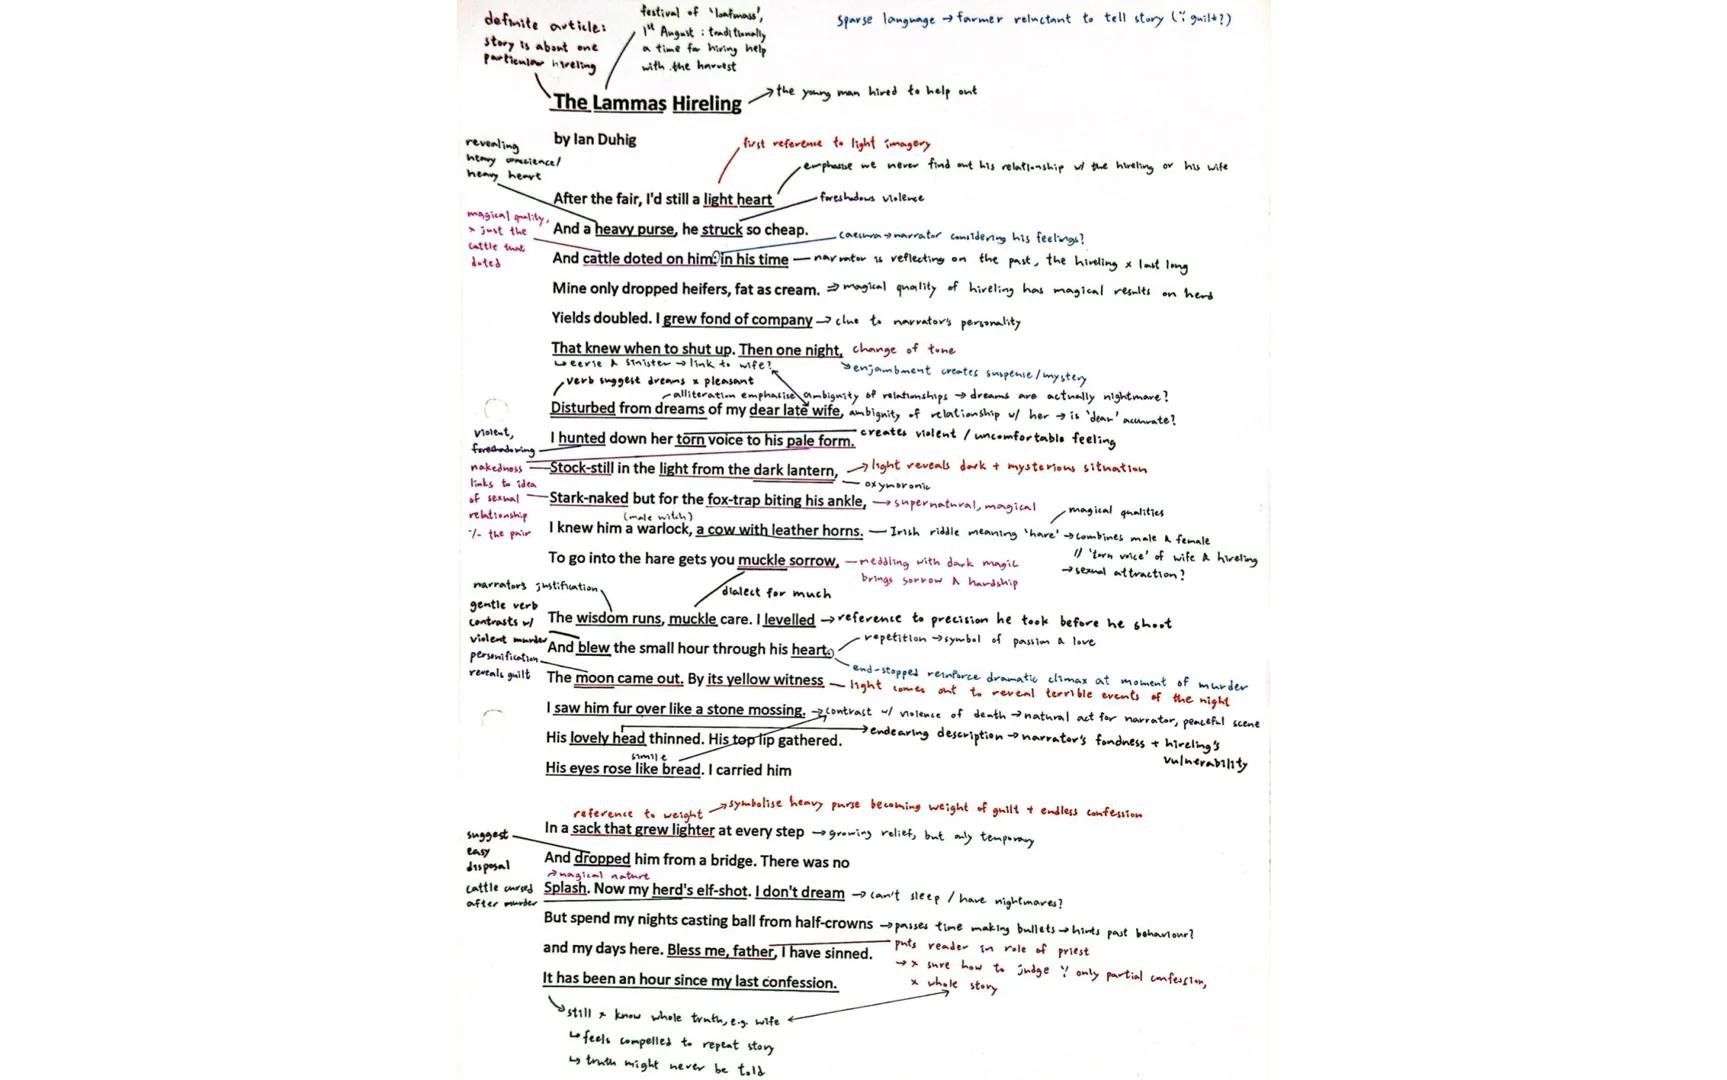 definite article:
story is about one
particular hireling
festival of 'loafmass',
1st August : traditionally
a time for hiring help
with the harvest
sparse language → farmer reluctant to tell story (∵ guilt?)
The Lammas Hireling
→ the young man hired to help out
by Ian Duhig
revealing
heavy conscience/
heavy heart
first reference to light imagery
emphasise we never find out his relationship w/ the hireling or his wife
After the fair, I'd still a light heart
foreshadows violence
magical quality,
x just the
cattle that
doted
And a heavy purse, he struck so cheap.
caesura → narrator considering his feelings?
And cattle doted on him: in his time — narrator is reflecting on the past, the hireling x last long
Mine only dropped heifers, fat as cream. ⇒ magical quality of hireling has magical results on herd
Yields doubled. I grew fond of company → clue to narrator's personality
That knew when to shut up. Then one night, change of tone
↳ eerie & sinister → link to wife?
↘ enjambment creates suspense/mystery
verb suggest dreams x pleasant
alliteration emphasise ambignity of relationships → dreams are actually nightmare?
Disturbed from dreams of my dear late wife, ambignity of relationship w/ her → is 'dear' accurate?
I hunted down her torn voice to his pale form. creates violent / uncomfortable feeling
violent,
foreshadowing
nakedness
links to idea
of sexual
relationship
the pair
Stock-still in the light from the dark lantern, → light reveals dark + mysterious situation
— oxymoronic
Stark-naked but for the fox-trap biting his ankle, → supernatural, magical
magical qualities
(male witch)
I knew him a warlock, a cow with leather horns. — Irish riddle meaning 'hare' → combines male & female
// 'torn voice' of wife & hireling
→ sexual attraction?
To go into the hare gets you muckle sorrow, — meddling with dark magic
brings sorrow & hardship
narrators justification
dialect for much
The wisdom runs, muckle care. I levelled → reference to precision he took before he shoot
gentle verb
contrasts w/
violent murder
repetition → symbol of passion & love
And blew the small hour through his heart.
end-stopped reinforce dramatic climax at moment of murder
personification
reveals guilt
The moon came out. By its yellow witness — light comes out to reveal terrible events of the night
I saw him fur over like a stone mossing. → contrast w/ violence of death → natural act for narrator, peaceful scene
His lovely head thinned. His top lip gathered.
endearing description → narrator's fondness + hireling's
vulnerability
simile
His eyes rose like bread. I carried him
reference to weight → symbolise heavy purse becoming weight of guilt + endless confession
In a sack that grew lighter at every step → growing relief, but only temporary
suggest
easy
disposal
And dropped him from a bridge. There was no
→ magical nature
cattle cursed
after murder
Splash. Now my herd's elf-shot. I don't dream → can't sleep / have nightmares?
But spend my nights casting ball from half-crowns → passes time making bullets → hints past behaviour?
and my days here. Bless me, father, I have sinned.
puts reader in role of priest
→ x sure how to judge ∵ only partial confession,
x whole story
It has been an hour since my last confession.
↘ still x know whole truth, e.g. wife
↳ feels compelled to repeat story
↳ truth might never be told